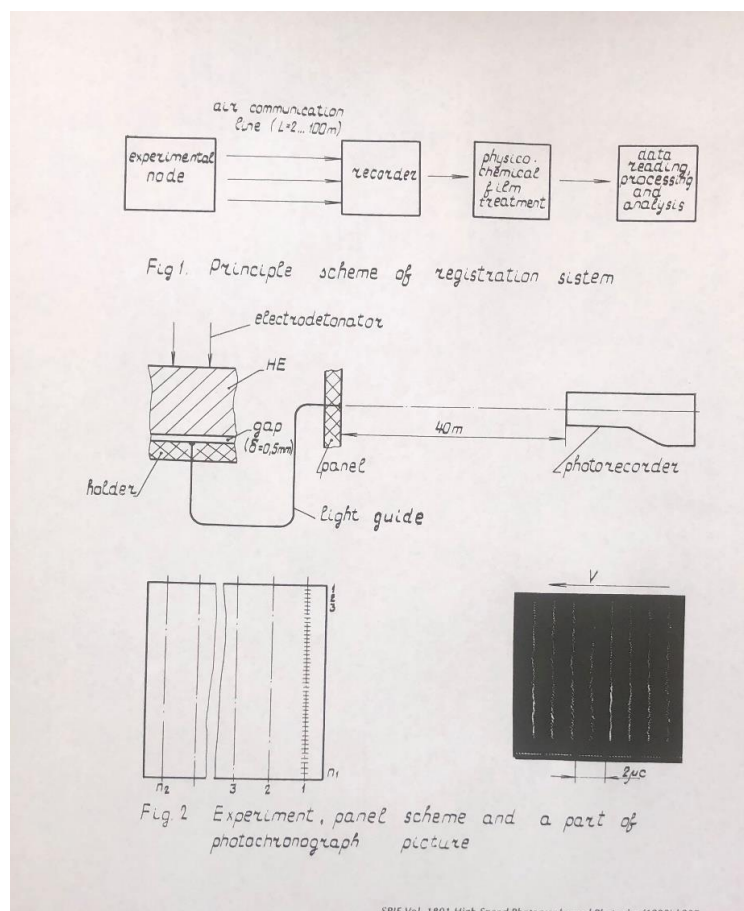 air communication
line (L=2...100m)
experimental
node
recorder
physico-
chemical
film
treatment
data
reading,
processing
and
analysis
Fig 1. Principle scheme of registration sistem
electrodetonator
HE
gap
(δ=0,5mm)
holder
panel
40m
photorecorder
light guide
1
2
3
n₁
n₂ 3 2 1
V
2μc
Fig. 2 Experiment, panel scheme and a part of
photochronograph picture